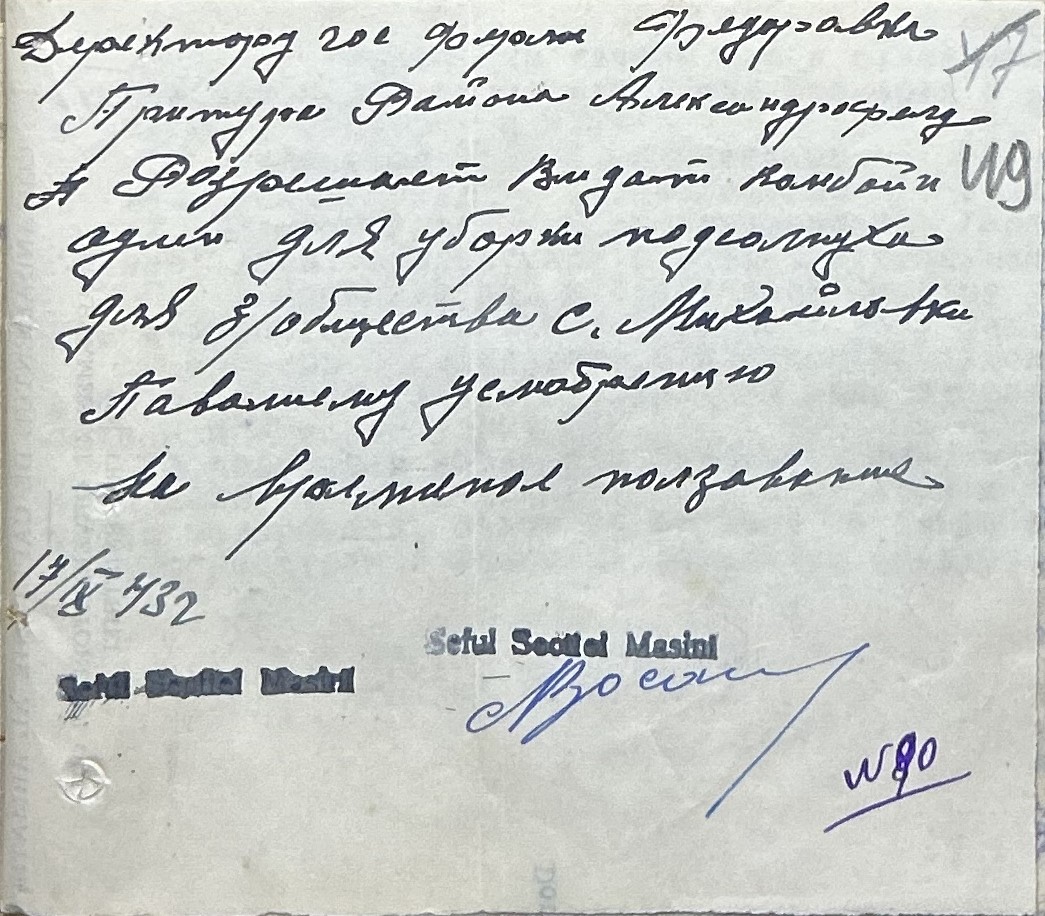 Деректору гос ферми Федоровка
Притура Района Александрофелд
Розрешает Видат комбайн
один для уборки подсолнуха
для з/общества с. Михайловки
Павашему усмотрению
На временое ползование
17/IX 432
Seful Sectiei Masini
Seful Sectiei Masini
N80
17
119